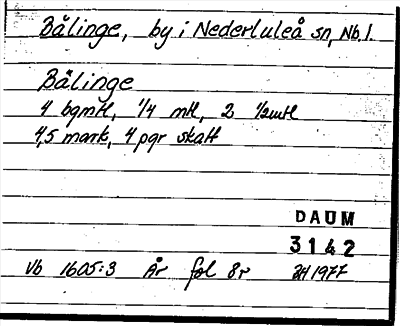 Bälinge, by i Nederluleå sn, Nb. l.
Bälinge
4 bgmtl, 1/4 mtl, 2 1/2mtl
4,5 mark, 4 pgr skatt
DAUM
3142
Vb 1605:3 År fol 8r BH 1977